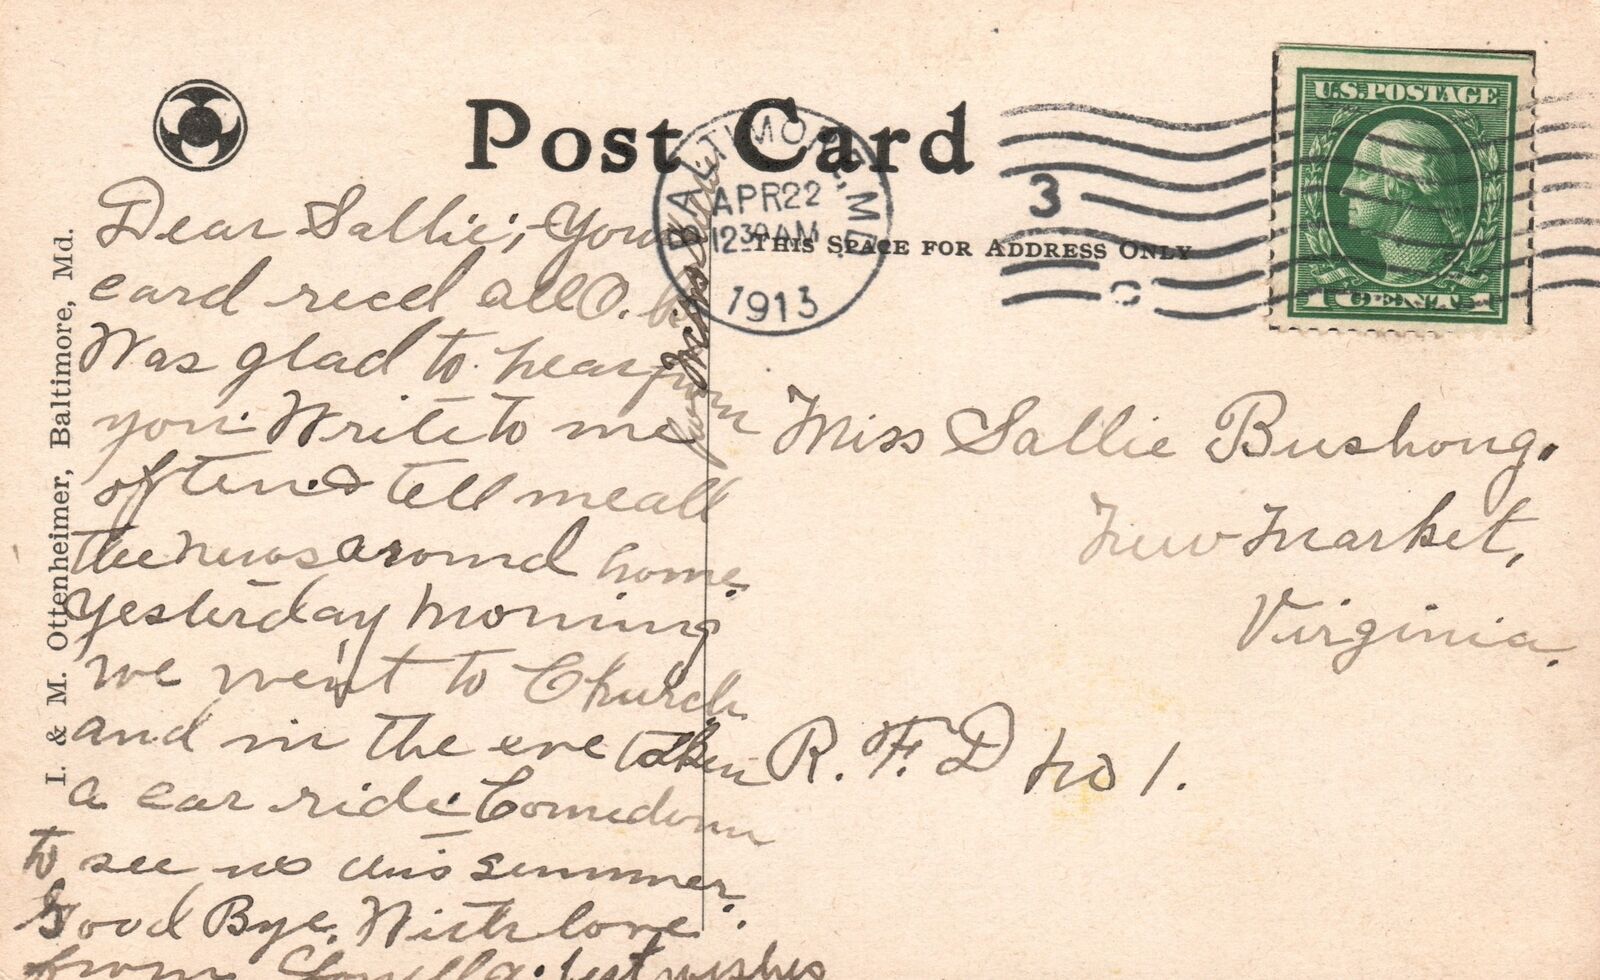 Post Card
THIS SPACE FOR ADDRESS ONLY
BALTIMORE, MD.
APR 22
12 30 AM
1913
3
U.S. POSTAGE
1 CENT 1
I. & M. Ottenheimer, Baltimore, Md.
Dear Sallie; Your
card recd all O.k.
Was glad to hear from
you. Write to me
often & tell me all
the news around home.
Yesterday morning
we went to Church
and in the eve taken
a car ride. Come down
to see us this summer.
Good Bye. With love.
from best wishes
Miss Sallie Bushong.
New Market,
Virginia.
R. F. D no 1.